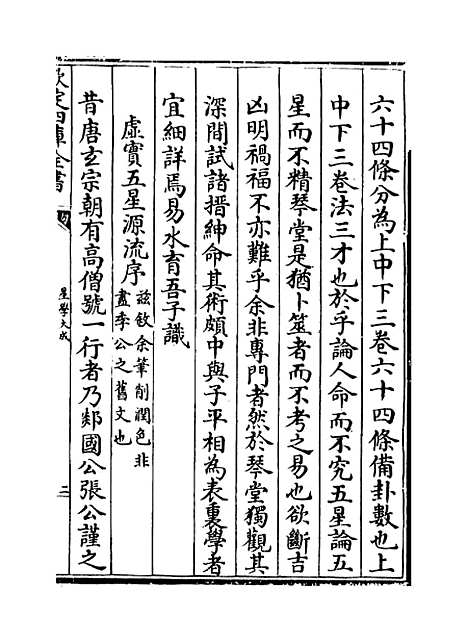 六十四條分為上中下三卷六十四條備卦數也上
中下三卷法三才也於乎論人命而不究五星論五
星而不精琴堂是猶卜筮者而不考之易也欲斷吉
凶明禍福不亦難乎余非專門者然於琴堂獨觀其
深間試諸搢紳命其術頗中與子平相為表裏學者
宜細詳焉易水育吾子識
虛實五星源流序
茲敘余筆削潤色非
盡李公之舊文也
昔唐玄宗朝有高僧號一行者乃郯國公張公謹之
欽定四庫全書
星學大成
三